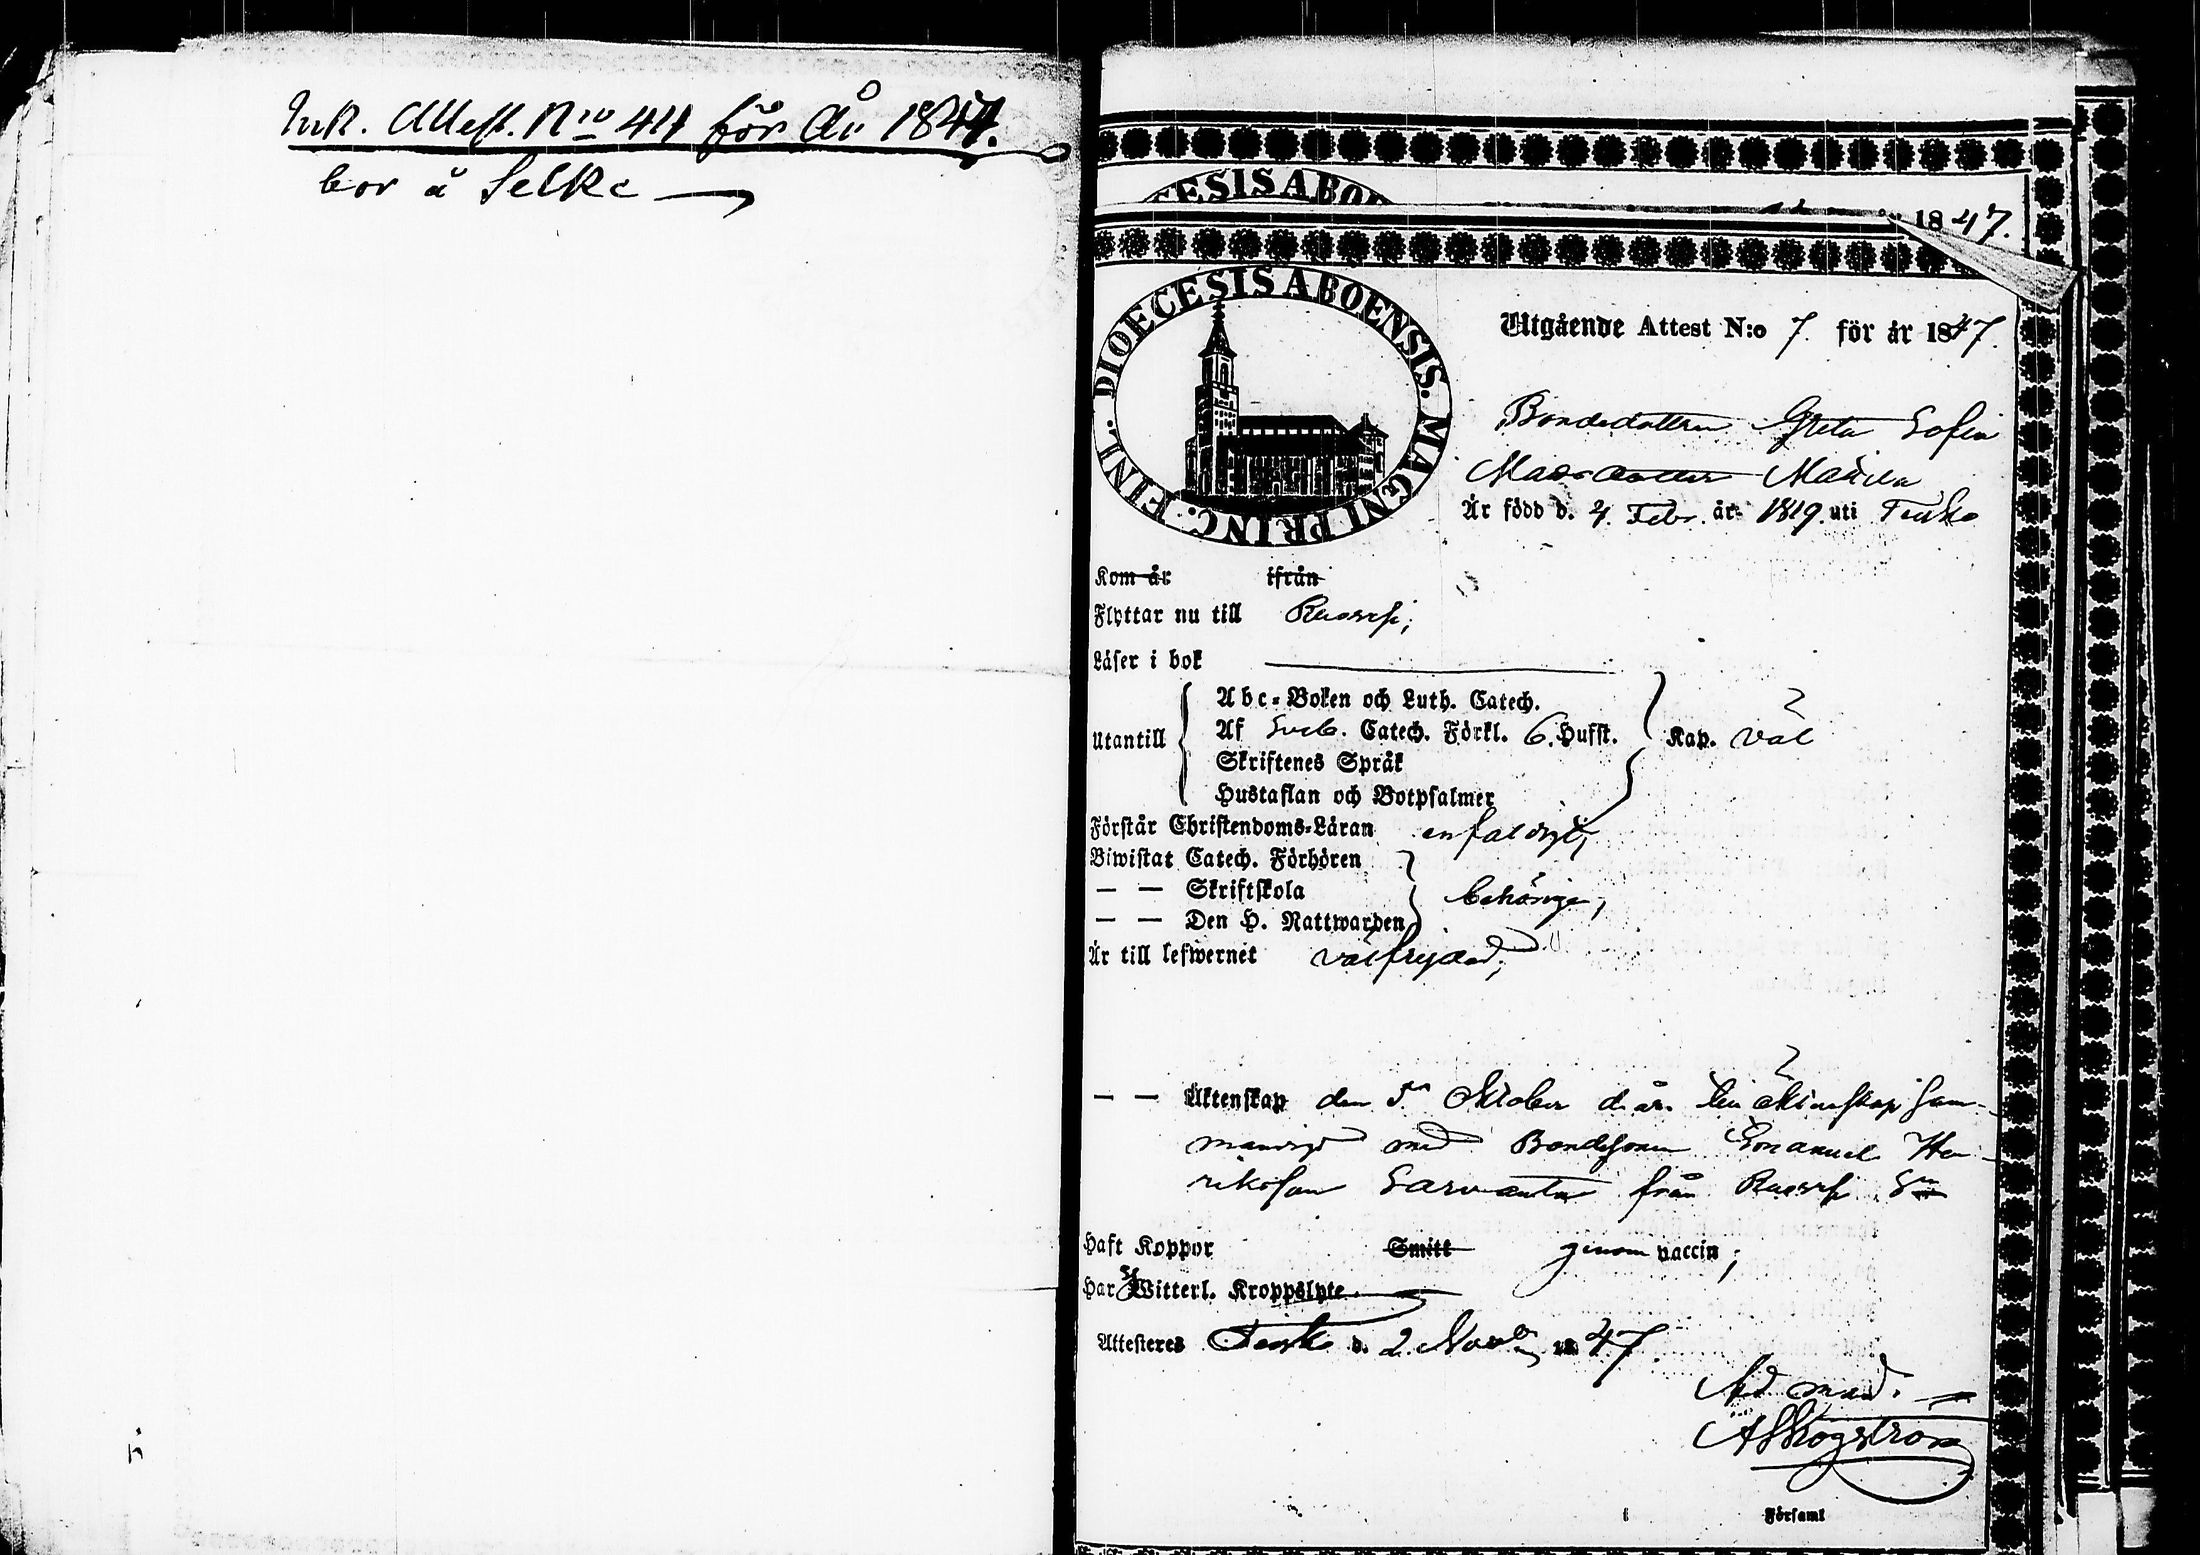 Ink. Attest. N:o 44 för År 1847.
bor å Selke
ESIS ABO
1847.
DIOECESIS ABOENSIS. MAGNI PRINC. FINL.
Utgående Attest N:o 7. för år 1847.
Bondedottren Greta Sofia
Madsdotter Mattila
Är född d. 4 Febr. år 1819. uti
Kom år ifrån
Flyttar nu till
Läser i bok
Abc-Boken och Luth. Catech.
Utantill Af Sveb. Catech. Förkl. 6. Hufst. Kap. väl
Skriftenes Språk
Hustaflan och Botpsalmer
Förstår Christendoms-Läran enfaldigt,
Biwistat Catech. Förhören
— — Skriftskola behörigen,
— — Den H. Nattwarden
Är till lefwernet välfrejdad;
— — Äktenskap den 5 Oktober d. år. till äktenskap sam-
manvigd med Bondesonen Emanuel Hen-
riksson från
Haft Koppor Smitt genom vaccin;
Har Witterl. Kroppslyte.
Attesteras d. 2 Nov. 1847.
Ad mand.
A Skogström
Församl